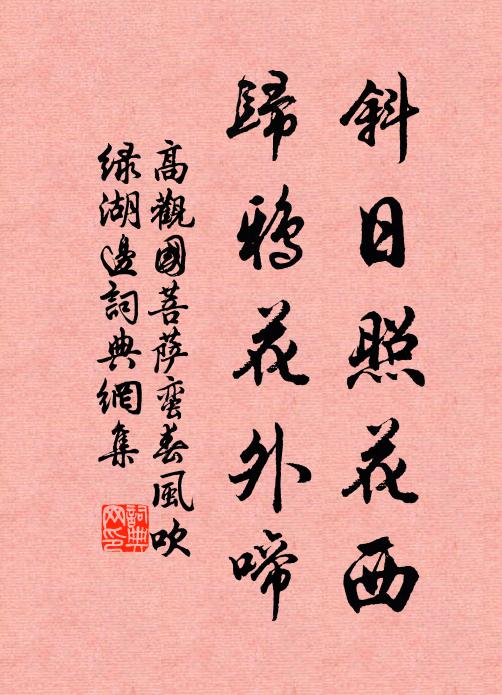 斜日照花西
歸鴉花外啼
高觀國菩萨蛮春風吹
绿湖邊詞典網集
詞典
网印